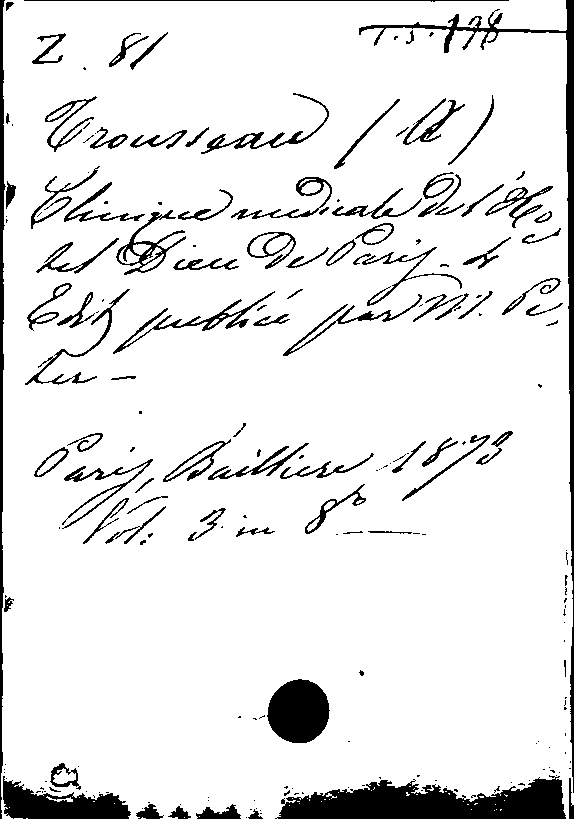 Z. 81
T.5.198
Trousseau (A)
Clinique medicale de l'Ho
tel Dieu de Paris. 4e
Edit publiée par M. Pe,
ter —
Paris, Baillière 1873
Vol: 3 in 8o —